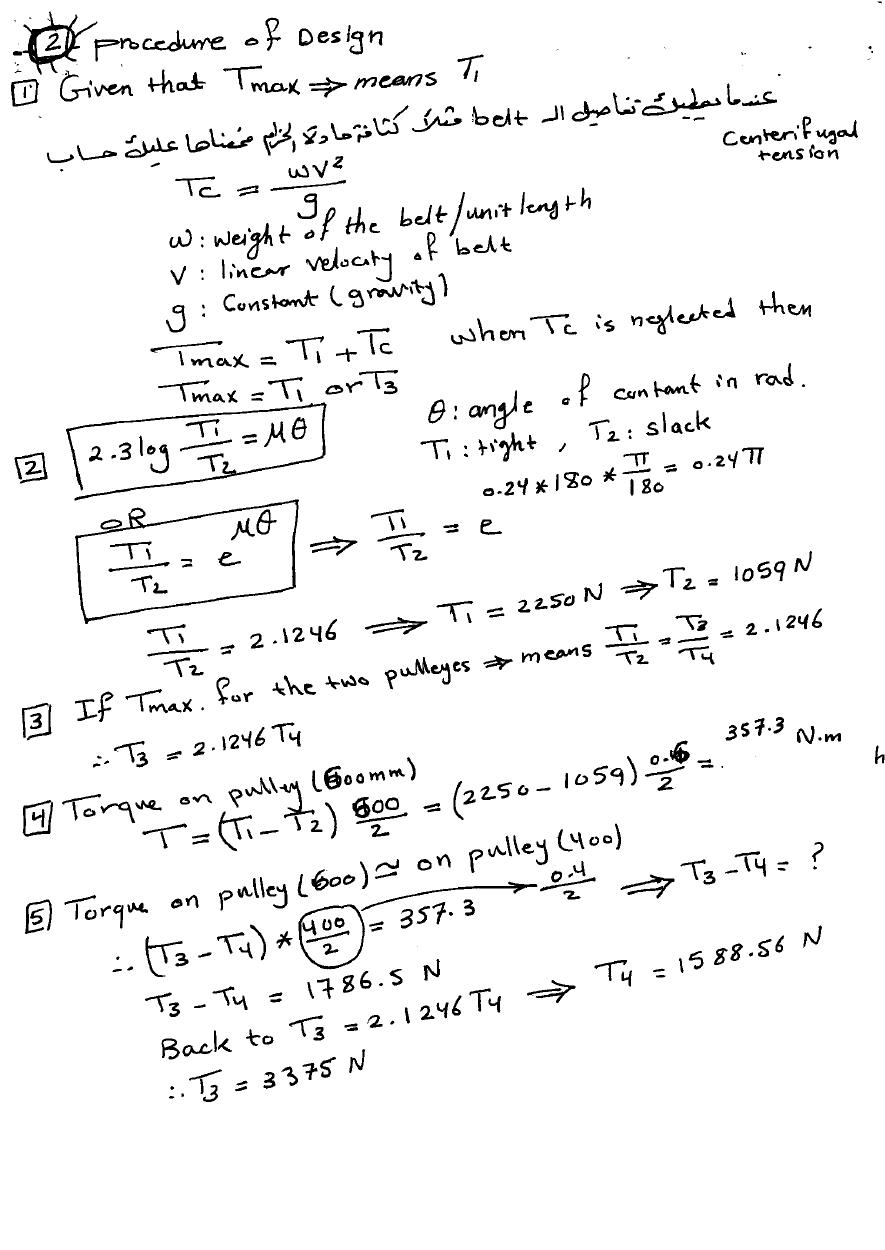 2 procedure of Design
1 Given that Tmax ⇒ means T1
عندما يعطيك تفاصيل الـ belt مثلاً كثافة مادة الحزام فمعناها عليك حساب
Centerifugal tension
Tc = wv²/g
w : weight of the belt/unit length
v : linear velocity of belt
g : Constant (gravity)
Tmax = T1 + Tc when Tc is neglected then
Tmax = T1 or T3
θ: angle of contant in rad.
2 2.3 log T1/T2 = μθ T1 : tight , T2 : slack
0.24 * 180 * π/180 = 0.24π
OR
T1/T2 = e^μθ ⇒ T1/T2 = e
T1/T2 = 2.1246 ⇒ T1 = 2250 N ⇒ T2 = 1059 N
3 If Tmax. for the two pulleyes ⇒ means T1/T2 = T3/T4 = 2.1246
∴ T3 = 2.1246 T4
4 Torque on pulley (600mm)
T = (T1 - T2) 600/2 = (2250 - 1059) 0.6/2 = 357.3 N.m
h
5 Torque on pulley (600) ≅ on pulley (400)
∴ (T3 - T4) * 400/2 = 357.3 0.4/2 ⇒ T3 - T4 = ?
T3 - T4 = 1786.5 N
Back to T3 = 2.1246 T4 ⇒ T4 = 1588.56 N
∴ T3 = 3375 N